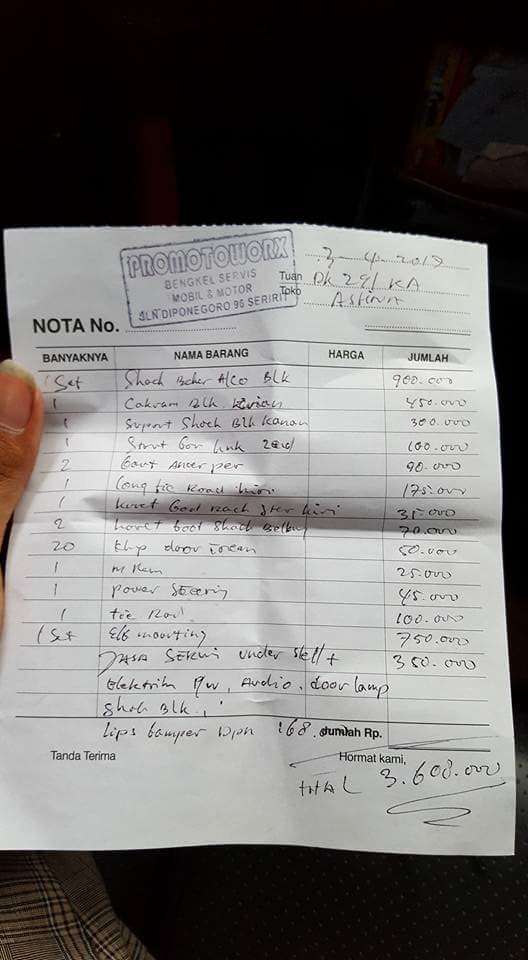 PROMOTOWORX
BENGKEL SERVIS
MOBIL & MOTOR
JLN DIPONEGORO 96 SERIRIT
3-4-2017
Tuan DK 291 KA
Toko
NOTA No.
BANYAKNYA NAMA BARANG HARGA JUMLAH
1 Set Shock Blk 900.000
1 Cakram Blk 450.000
1 Suport Shock Blk Kanan 300.000
1 link 100.000
2 per 90.000
1 Long tie Road kiri 175.000
1 karet Boot Rack Ster kiri 35.000
2 karet boot Shock 70.000
20 klip door 50.000
1 25.000
1 power Steering 45.000
1 tie Rod 100.000
1 Set mounting 750.000
JASA SERVIS under + 350.000
Elektrik PW, Audio, door lamp
Shock Blk,
Lips bamper Dpn 168.000 Jumlah Rp.
Tanda Terima Hormat kami,
total 3.608.000